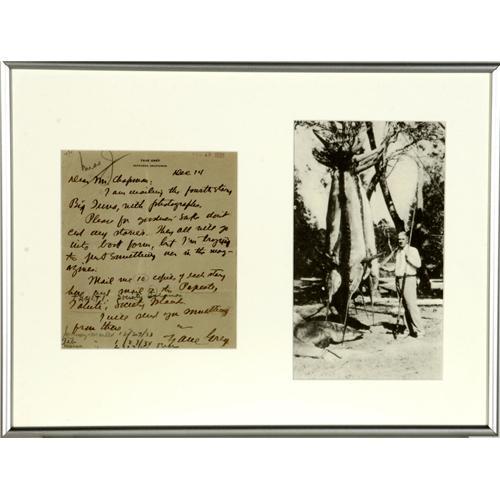 ZANE GREY
ALTADENA, CALIFORNIA
Dec 14
Dear Mr. Chapman.
I am mailing the fourth story
Big Tuna, with photographs.
Please for goodness sake don't
cut any stories. They all will go
into book form, but I'm trying
to put something over in the mag-
azines.
Mail me 10 copies of each story
here and mail to the Papeete,
Tahiti, Society Islands.
I will send you something
from there
Zane Grey